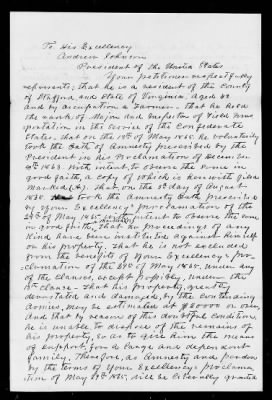 To His Excellency
Andrew Johnson
President of the United States
Your petitioner respectfully
represents; that he is a resident of the County
of Stafford and State of Virginia, Aged
and by occupation a Farmer. That he held
the rank of Major and Inspector of Field Trans
portation in the Service of the Confederate
States. That on the 12th of May 1865, he voluntarily
took the Oath of Amnesty prescribed by the
President in his Proclamation of December
8th 1863 with intent to observe the same in
good faith, a copy of which is herewith filed
Marked (A). That, on the 3d day of August
1865 took the Amnesty Oath prescribed
by your Excellency's proclamation of the
29th of May 1865 with intent to observe the same
in good faith, that no proceedings of any
kind have been instituted against himself
or his property. That he is not excluded
from the benefits of your Excellency's pro-
clamation of the 29th of May 1865, under any
of the clauses, except possibly, under the
clause - That his property, greatly
devastated and damaged by the contending
armies, may be estimated at $20000 or over,
And that by reason of this doubtful condition
he is unable to dispose of the remains of
his property, so as to give him the means
of support for a large and dependent
family. Therefore, as Amnesty and pardon
by the terms of Your Excellency's proclama
tion of May 29th 1865, will be liberally granted